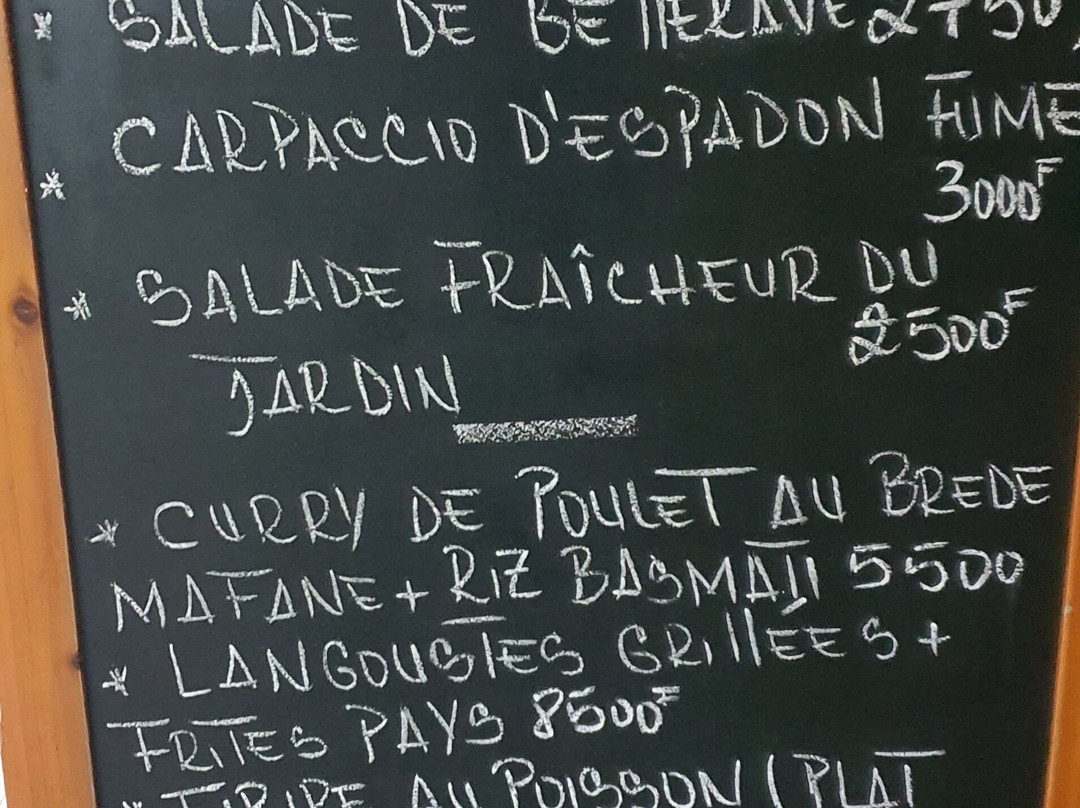 * SALADE DE BETTERAVE 2750
CARPACCIO D'ESPADON FUMÉ
* 3000F
* SALADE FRAÎCHEUR DU
2500F
JARDIN
* CURRY DE POULET AU BREDE
MAFANE + RIZ BASMATI 5500
* LANGOUSTES GRILLÉES +
FRITES PAYS 8500F
AU POISSON (PLAT